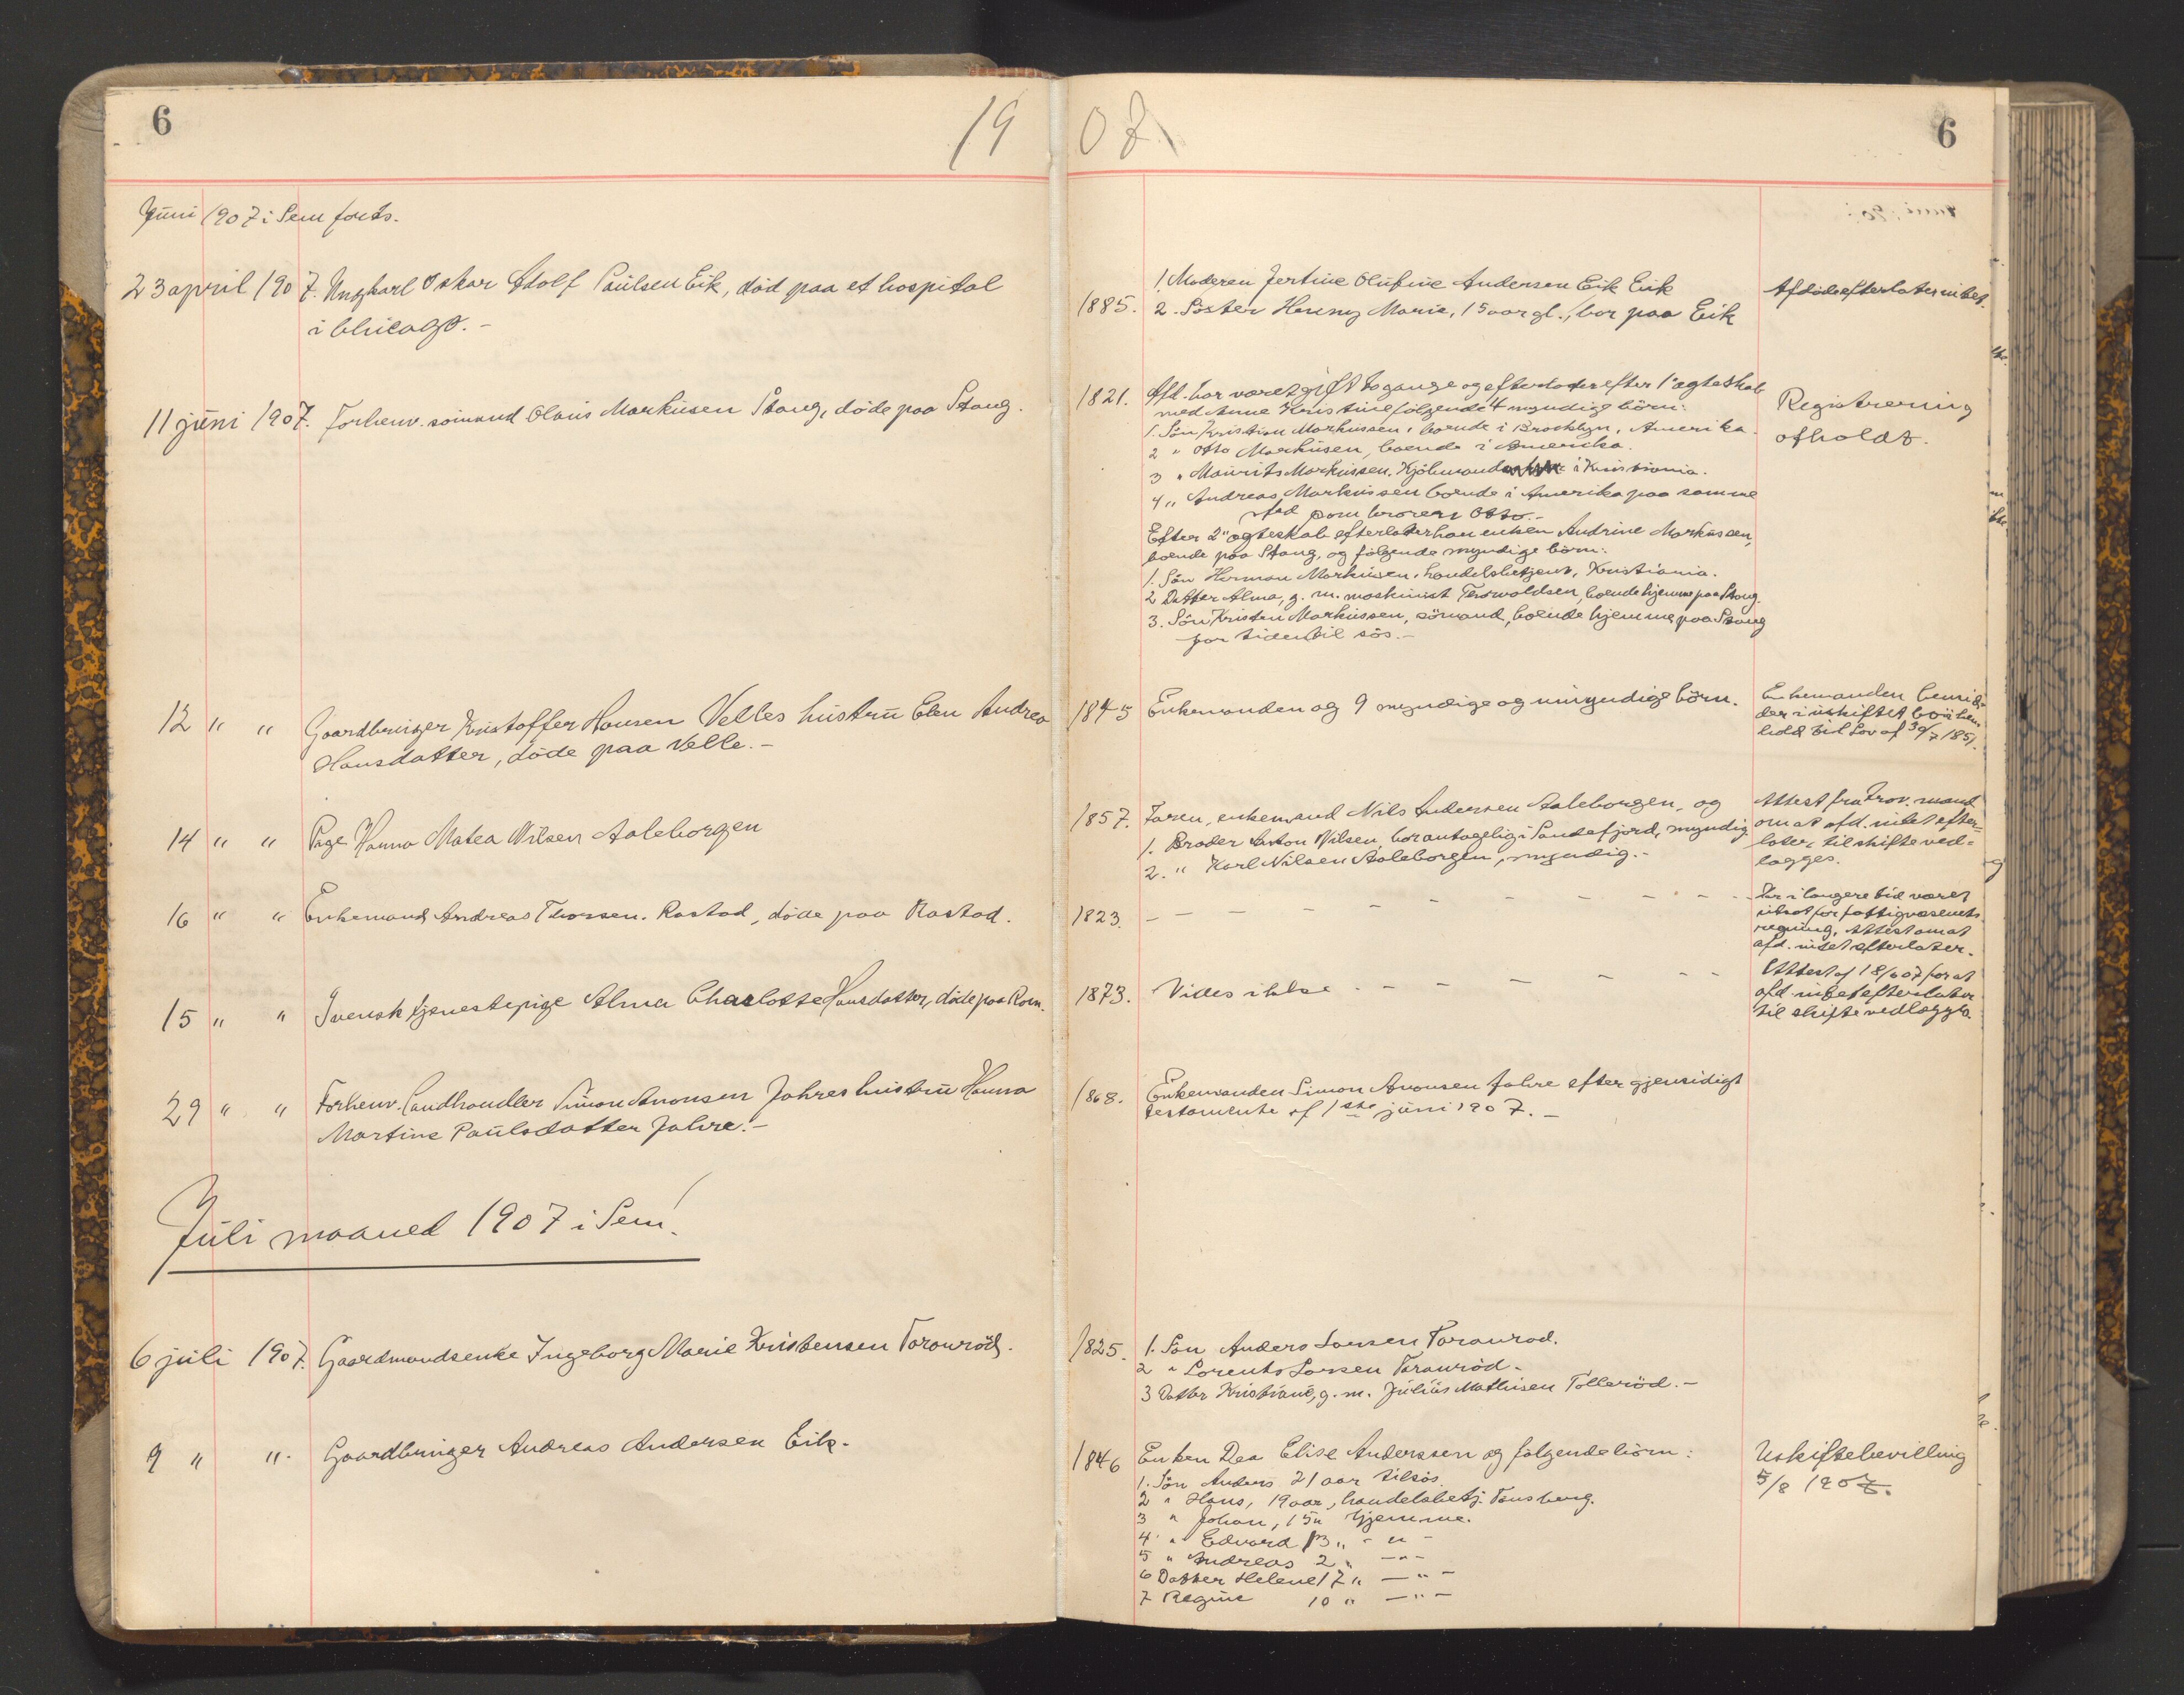 6
19
07
6
Juni 1907 i Sem forts.
23 april 1907. Ungkarl Oskar Adolf Paulsen Eik, död paa et hospital
i Chicago.-
1885.
1. Moderen Jertine Olufine Andersen Eik Eik
2. Söster Henny Marie, 15 aar gl., bor paa Eik
Afdöde efterlater intet.
11 juni 1907. Forhenv. sömand Olaus Markusen Stang, döde paa Stang.
1821.
Afd. har været gift to gange og efterlater efter 1' ægteskab
med Anne Kristine fölgende 4 myndige börn:
1. Sön Kristian Markussen, boende i Brooklyn, Amerika.
2 " Otto Markusen, boende i Amerika.
3 " Maurits Markussen, Kjöbmand i Kristiania.
4 " Andreas Markussen boende i Amerika paa samme
sted som broren Otto.-
Efter 2" ægteskab efterlater han enken Andrine Markussen,
boende paa Stang, og fölgende myndige börn:
1. Sön Herman Markusen, handelsbetjent, Kristiania.
2 Datter Alma, g. m. maskinist Thorvaldsen, boende hjemme paa Stang.
3. Sön Kristen Markussen, sömand, boende hjemme paa Stang
for tiden til sös.-
Registrering
afholdt.
12 " " Gaardbruger Kristoffer Hansen Velles hustru Elen Andrea
Hansdatter, döde paa Velle.-
1845
Enkemanden og 9 myndige og umyndige börn.
Enkemanden
der i uskiftet bo i hen
hold til Lov af 30/7 1851.
14 " " Pige Hanna Matea Nilsen Aaleborgen
1857.
Faren, enkemand Nils Andersen Aaleborgen, og
1. Broder Anton Nilsen, bor antagelig i Sandefjord, myndig
2. " Karl Nilsen Aaleborgen, myndig.-
Attest fra Prov. mand
om at afd. intet efter=
later, til skifte ved=
lægges.
16 " " Enkemand Andreas Thorsen. Rastad, döde paa Rastad.
1823. - - - - - - - - - -
Har i længere tid været
utsat for fattigvæsenets
regning, Attest om at
afd. intet efterlater.
15 " " Svensk tjenestepige Alma Charlotte Hansdatter, döde paa Rom.
1873. Vides ikke - - - - - -
Attest af 18/6 07 for at
afd. intet efterlater
til skifte vedlægges.
29 " " Forhenv. Landhandler Simon Aronsen Jahres hustru Hanna
Martine Paulsdatter Jahre.-
1868.
Enkemanden Simon Aronsen Jahre efter gjensidigt
testamente af 1ste juni 1907.-
Juli maaned 1907 i Sem.
6 juli 1907. Gaardmandsenke Ingeborg Marie Kristensen Taranröd.
1825.
1. Sön Anders Larsen Taranröd.
2 " Lorents Larsen Taranröd.
3 Datter Kristiane, g. m. Julius Mathisen Tolleröd.-
9 " ". Gaardbruger Andreas Andersen Eik.
1846
Enken Dea Elise Anderssen og fölgende börn:
1. Sön Anders 21 aar tilsös.
2 " Hans, 19 aar, handelsbetj. Tønsberg.
3 " Johan, 15 " hjemme.
4 " Edvard 13 " - " -
5 " Andreas 2 " - " -
6 Datter Helene 17 " - " -
7 Regine 10 " - " -
Uskiftebevilling
5/8 1907.